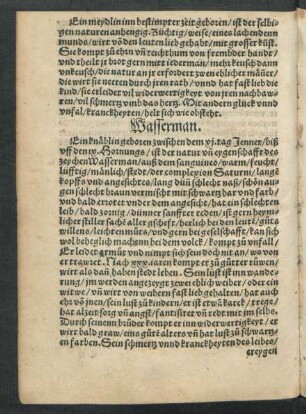 Ein meydlin im bestimpter zeit geboren / ist der selbi-
gen natur en anhengig. Züchtig / weise / eines lachenden
munds / wirt võ den leuten lieb gehabt / mit grosser küst.
Sie kompt zů ehrn vñ reichthum von frembder handt /
vnd theilt jr brot gern mitt iederman / mehr keusch dann
vnkeusch / die natur an jr erfordert zwen ehlicher männer /
die wirt sie neeren durch jren rath / vnd hat fast lieb die
kind / sie erleidet vil widerwertigkeyt von jren nachbaw-
ren / vil schmertz vmb das hertz. Mit andern glück vnnd
vnfal / kranckheyten / helt sich wie obsteht.
Wasserman.
Ein knäblin geboren zwischen dem vj. tag Jenner / biß
vff den xv. Hornungs / ist der natur vñ eygenschafft des
zeychen Wasserman / auß dem sanguineo / warm / feucht /
lüfftig / mänlich / stedt / der complexion Saturni / lang
kopffs vnd angesichts / lang dünn schlecht naß / schön au-
gen schlecht braun vermischt mit schwartz har vnd farb /
vnd bald errötet vnder dem angesicht / hat ein schlechten
leib / bald zornig / dünner sanffter reden / ist gern heym-
licher stiller sachẽ aller gscheft / herlich bei den leutẽ / gůts
willens / leicht emmůts / vnd gern bei gesellschafft / kan sich
wol beheglich machẽn bei dem volck / kompt zů vnfall /
Er leidet armůt vnd nimpt sich sein doch nit an / wo von
er traweret. Nach xxx. jaren kompt er zů gůtter růwen /
wirt also daũ haben stedt leben. Sein lust ist inn wande-
rung / jm werden angezeygt zwei ehlich weiber / oder ein
witwe / vñ wirt von weibern fast lieb gehalten / hat auch
ehr võ jnen / sein lust zů kindern / er ist etwã karck / trege /
hat alzeit sorg vñ angst / fantisiret vñ redt mit jm selbs.
Durch seinenn brůder kompt er inn widerwertigkeyt / er
wirt bald graw / eins gůtẽ alters vñ hat lust zů schwartz-
en farben. Sein schmertz vnnd kranckheyten des leibes /
ereygen